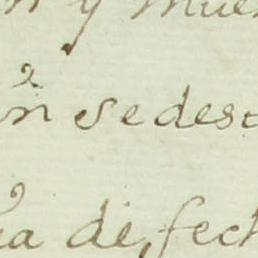 n y mue
n̄ se dese
a de fech